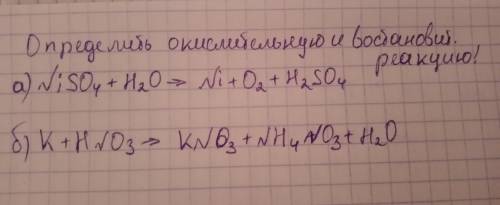 Определить окислительную и востановит.
реакцию!
а) NiSO4 + H2O → Ni + O2 + H2SO4
б) K + HNO3 → KNO3 + NH4NO3 + H2O